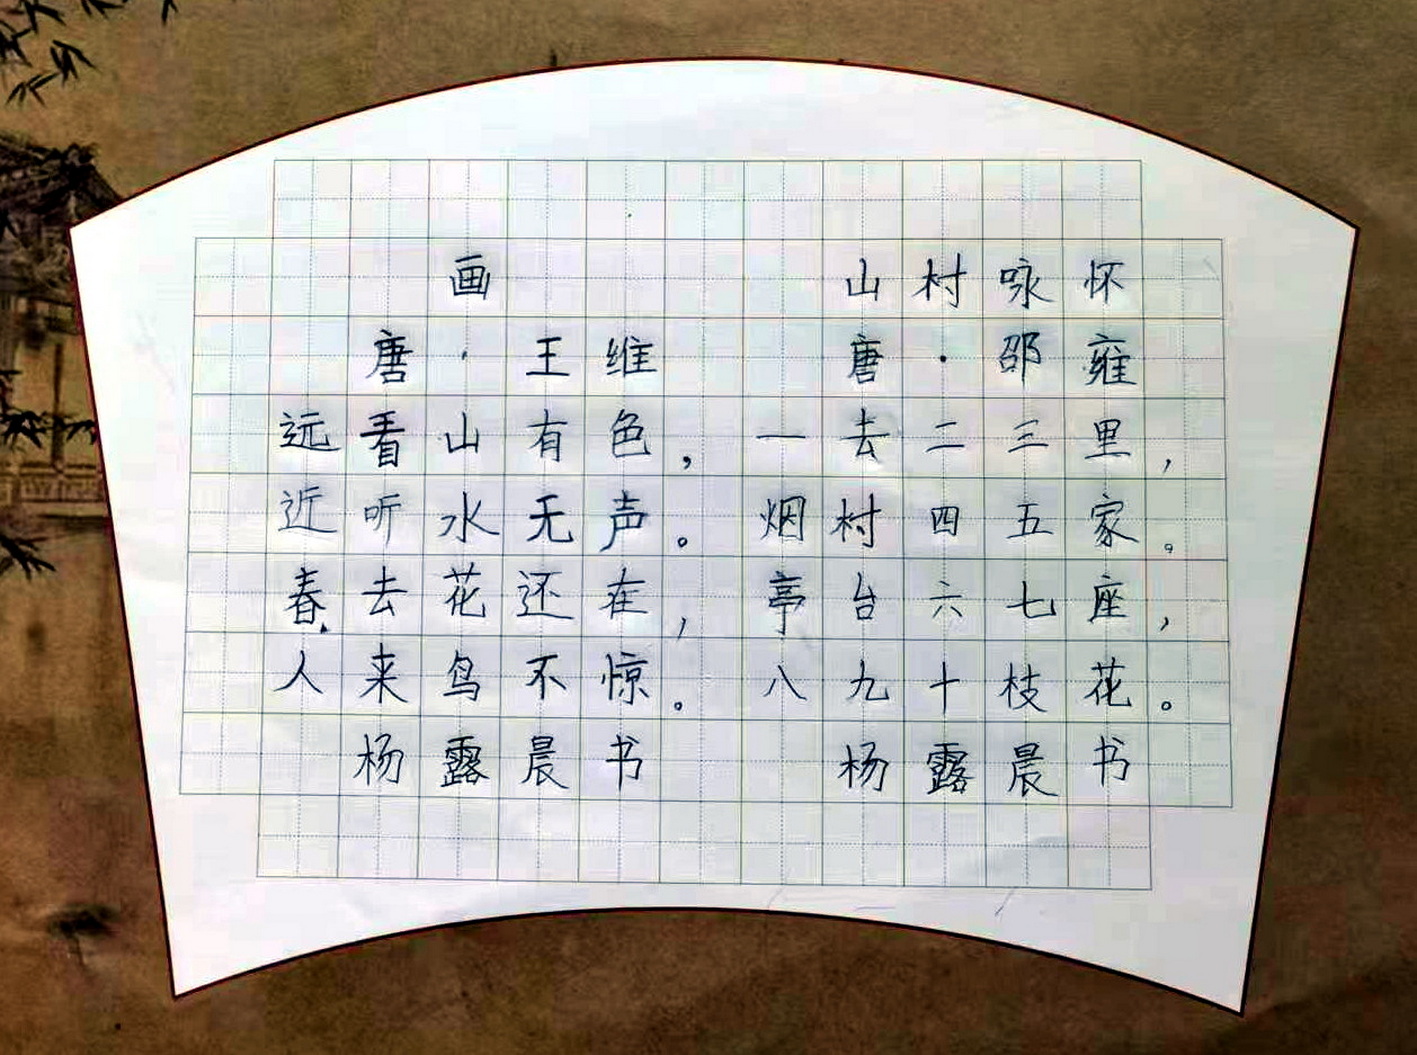 画
唐·王维
远看山有色，
近听水无声。
春去花还在，
人来鸟不惊。
杨露晨书
山村咏怀
唐·邵雍
一去二三里，
烟村四五家。
亭台六七座，
八九十枝花。
杨露晨书